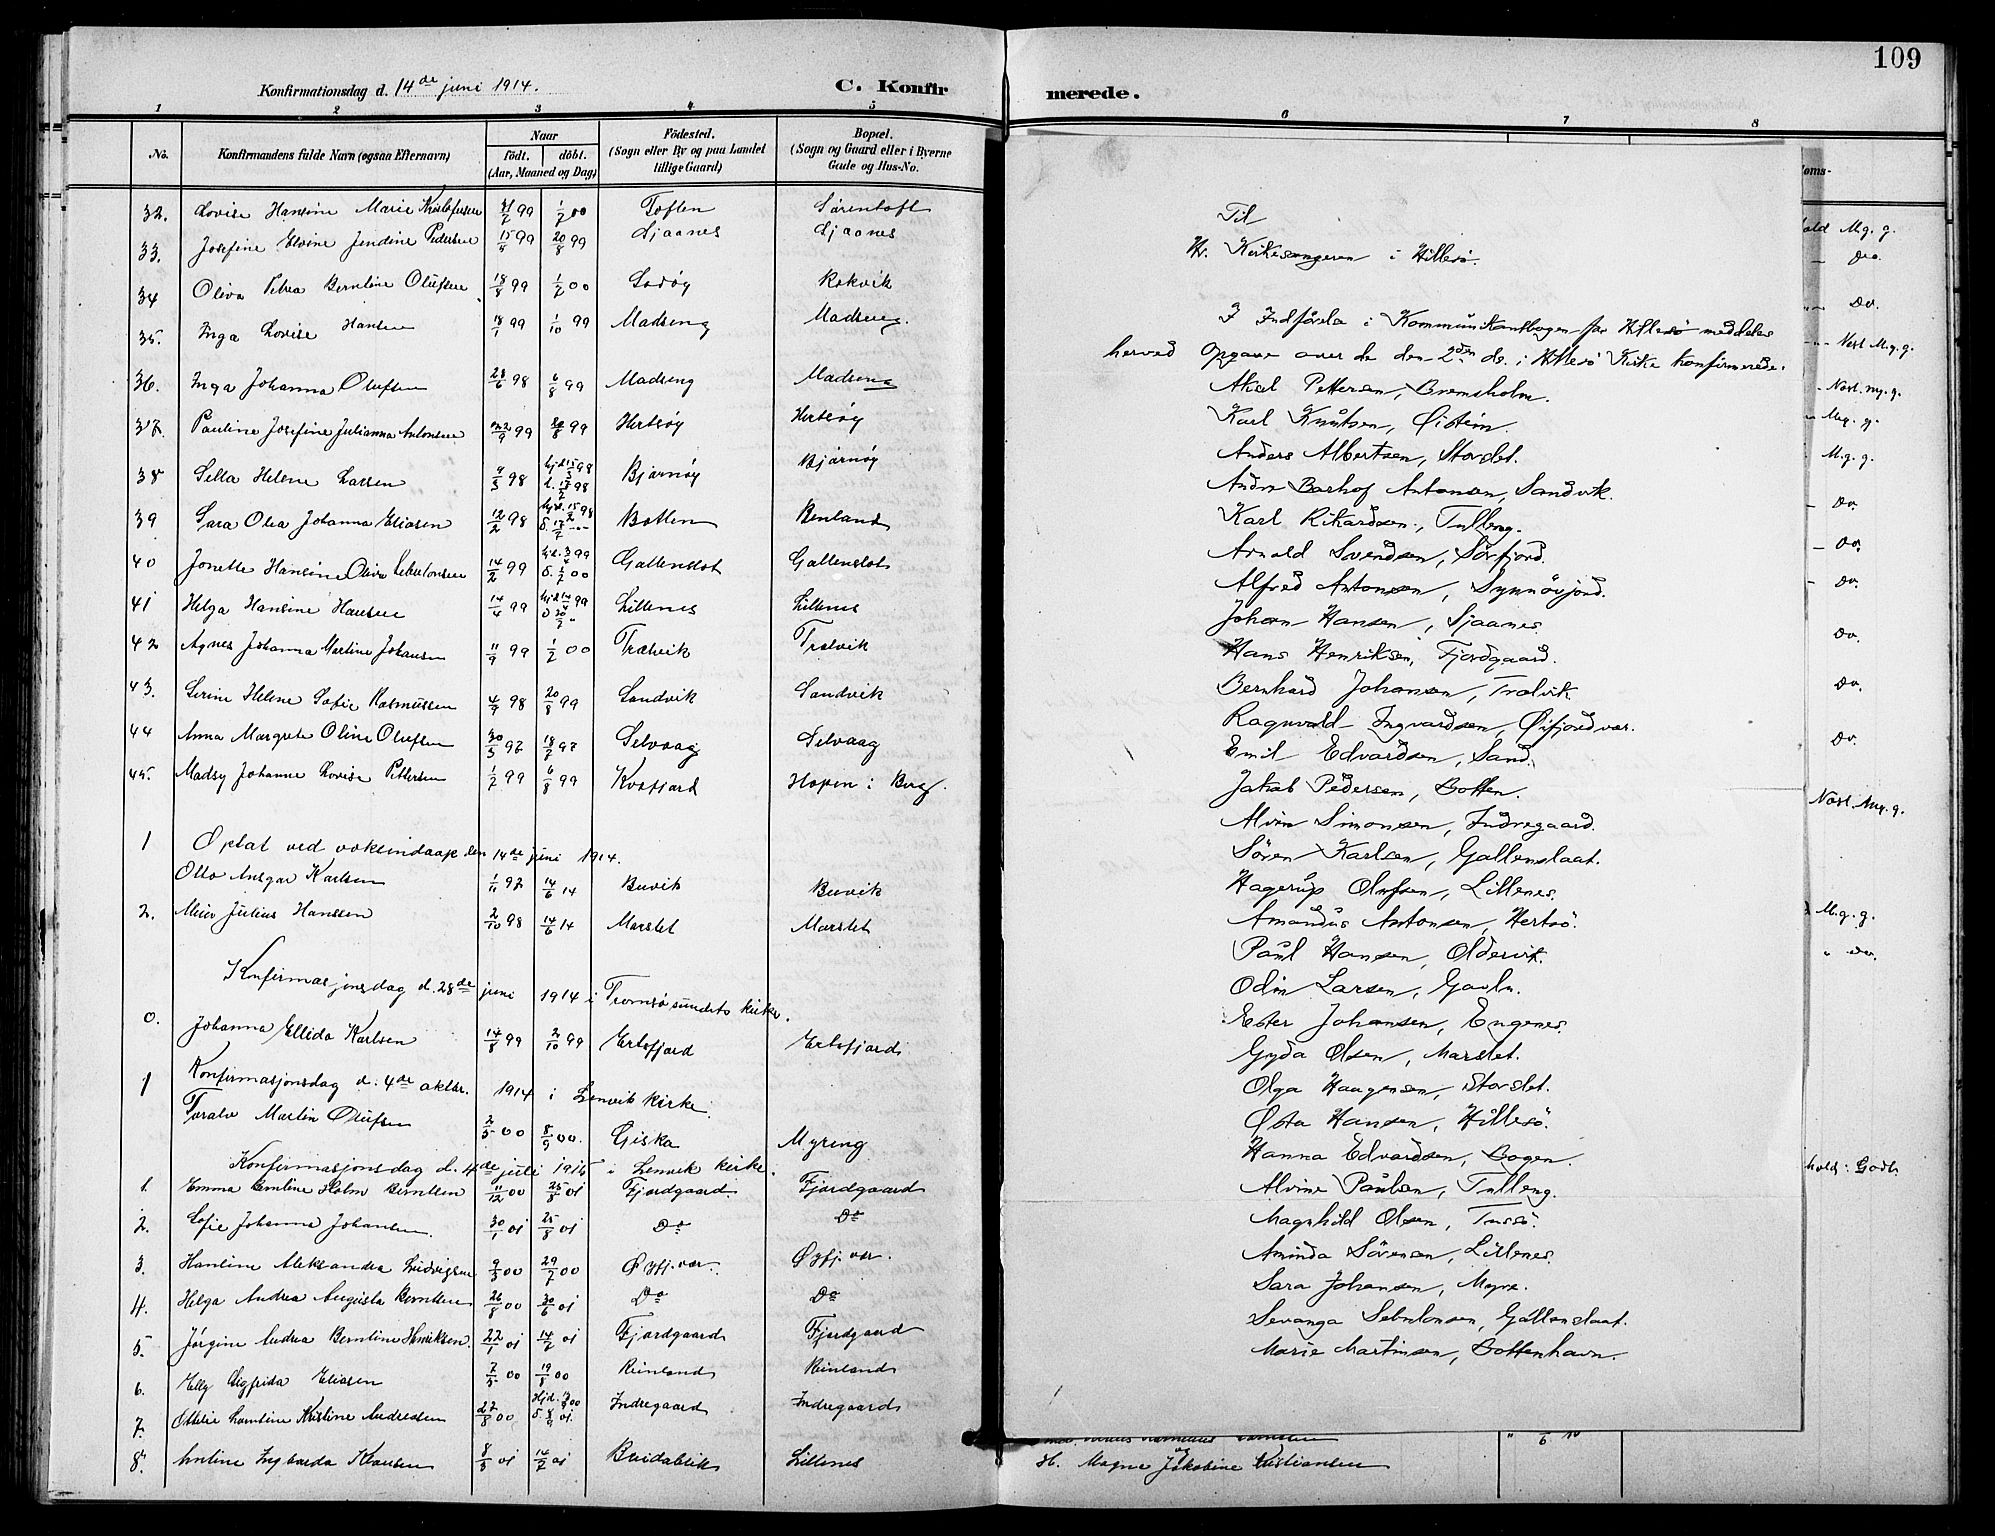 109
Konfirmationsdag d. 14de juni 1914.
C. Konfirmerede.
1 2 3 4 5 6 7 8
No.
Konfirmandens fulde Navn (ogsaa Efternavn)
Naar
födt. döbt.
(Aar, Maaned og Dag)
Födested.
(Sogn eller By og paa Landet
tillige Gaard)
Bopæl.
(Sogn og Gaard eller i Byerne
Gade og Hus-No.
32. Lovise Hansine Marie Kristofersen 99 1/2 00 Toften Sörentoft
33. Josefine Elvine Jendine Pedersen 15/5 99 20/8 99 Sjaanes Sjaanes
34 Oliva Petra Berntine Olufsen 18/8 99 1/2 00 Rekvik
35. Inga Lovise Hansen 18/1 99 1/10 99 Madseng Madseng.
36. Inga Johanna Olufsen 98 6/8 99 Madseng Madseng
37. Pauline Josefine Julianna Antonsen 22/9 99 20/8 99 Hertsöy Hertsöy
38 Sella Helene Larsen 98 Bjórnóy Bjórnóy
39 Sara Olea Johanna Eliasen 12/2 98 Botten Renland
40 Jonette Hansine Oliva 14/2 99 Gallenslot Gallenslot
41 Helga Hansine Hansen 14/4 99 Lillenes Lillenes
42 Agnes Johanna Martine Johansen 11/9 99 1/2 00 Trælvik Trælvik
43. Serine Helene Sofie Rasmussen 4/9 98 20/8 99 Sandvik Sandvik
44 Anna Margrete Oline Olufsen 30/5 97 97 Selvaag Selvaag
45. Madsy Johanne Lovise Pettersen 1/2 99 6/8 99 Kvæfjord Hopen i Berg.
Optat ved voksendaap den 14de juni 1914.
1 Otto Ansgar Karlsen 1/11 97 14/6 14 Buvik Buvik
2. Meier Julius Hanssen 2/10 98 14/6 14 Marslet Marslet
Konfirmasjonsdag d. 28de juni 1914 i Tromsösundets kirke.
0. Johanna Ellida Karlsen 14/8 99 2/10 99 Ersfjord Ersfjord
Konfirmasjonsdag d. 4de oktbr. 1914 i Lenvik kirke.
1 Toralv Martin Olufsen 2/5 00 8/9 00. Giska Myreng
Konfirmasjonsdag d. 4de juli 1915 i Lenvik kirke.
1. Emma Berntine Holm Berntsen 11/12 00 25/8 01 Fjordgaard Fjordgaard
2. Sofie Johanna Johansen. 30/1 01 25/8 01 Do Do
3. Hansine Aleksandra Ludvigsen 9/3 00 29/7 00 Öyfj.vær. Öyfj.vær.
4. Helga Andrea Augusta Berntsen 26/8 00 30/6 01 Do Do
5. Jörgine Andrea Berntine Henriksen. 22/1 01 14/2 01 Fjordgaard Fjordgaard
6. Elly Sigfrida Eliasen 7/5 00 19/8 00 Reinland Reinland
7. Ottilie Lorentine Kristine Andreassen 22/8 00 Indregaard Indregaard
8. Antine Ingvarda Klausen 8/3 01 14/7 01 Breidablik Lillenes
Til
Hr. Kirkesangeren i Hillesö.
I Indförsla i Kommunikantbogen for Hillesö meddeles
herved Opgave over de den 2den ds. i Hillesö Kirke konfirmerede.
Aksel Pettersen, Bremsholm.
Karl Knutsen, Öistein.
Anders Albertsen, Storslet.
Andor Antonsen, Sandvik.
Karl Rikardsen, Tulleng.
Arnold Svendsen, Sörfjord.
Alfred Antonsen, Synnövjord.
Johan Hansen, Sjaanes.
Hans Henriksen, Fjordgaard.
Bernhard Johansen, Trælvik.
Ragnvald Ingvardsen, Öifjordvær.
Emil Edvardsen, Sand.
Jakob Pedersen, Botten.
Alvin Simonsen, Indregaard.
Sören Karlsen, Gallenslaat.
Hagerup Olufsen, Lillenes.
Amandus Antonsen, Hertsö.
Paul Hansen, Oldervik.
Odin Larsen, Gavln.
Ester Johansen, Engenes.
Gyda Olsen, Marslet.
Olga Haugensen, Storslet.
Östa Hansen, Hillesö.
Hanna Edvardsen, Bogen.
Alvine Paulsen, Tulleng.
Magnhild Olsen, Tussö.
Aminda Sörensen, Lillenes.
Sara Johansen, Myre.
Sevanga Sebulonsen, Gallenslaat.
Marie Martinsen, Bottenhavn.
M. g. g.
Do.
Do.
Næst M. g. g.
Næst. m. g. g.
Meg. g.
M. g. g.
Do.
Do.
Do.
Do.
Do.
Do.
Næst. Meg. g.
M. g. g.
" Do.
hold: Godt
St. Magna Jakobine Kristiansen